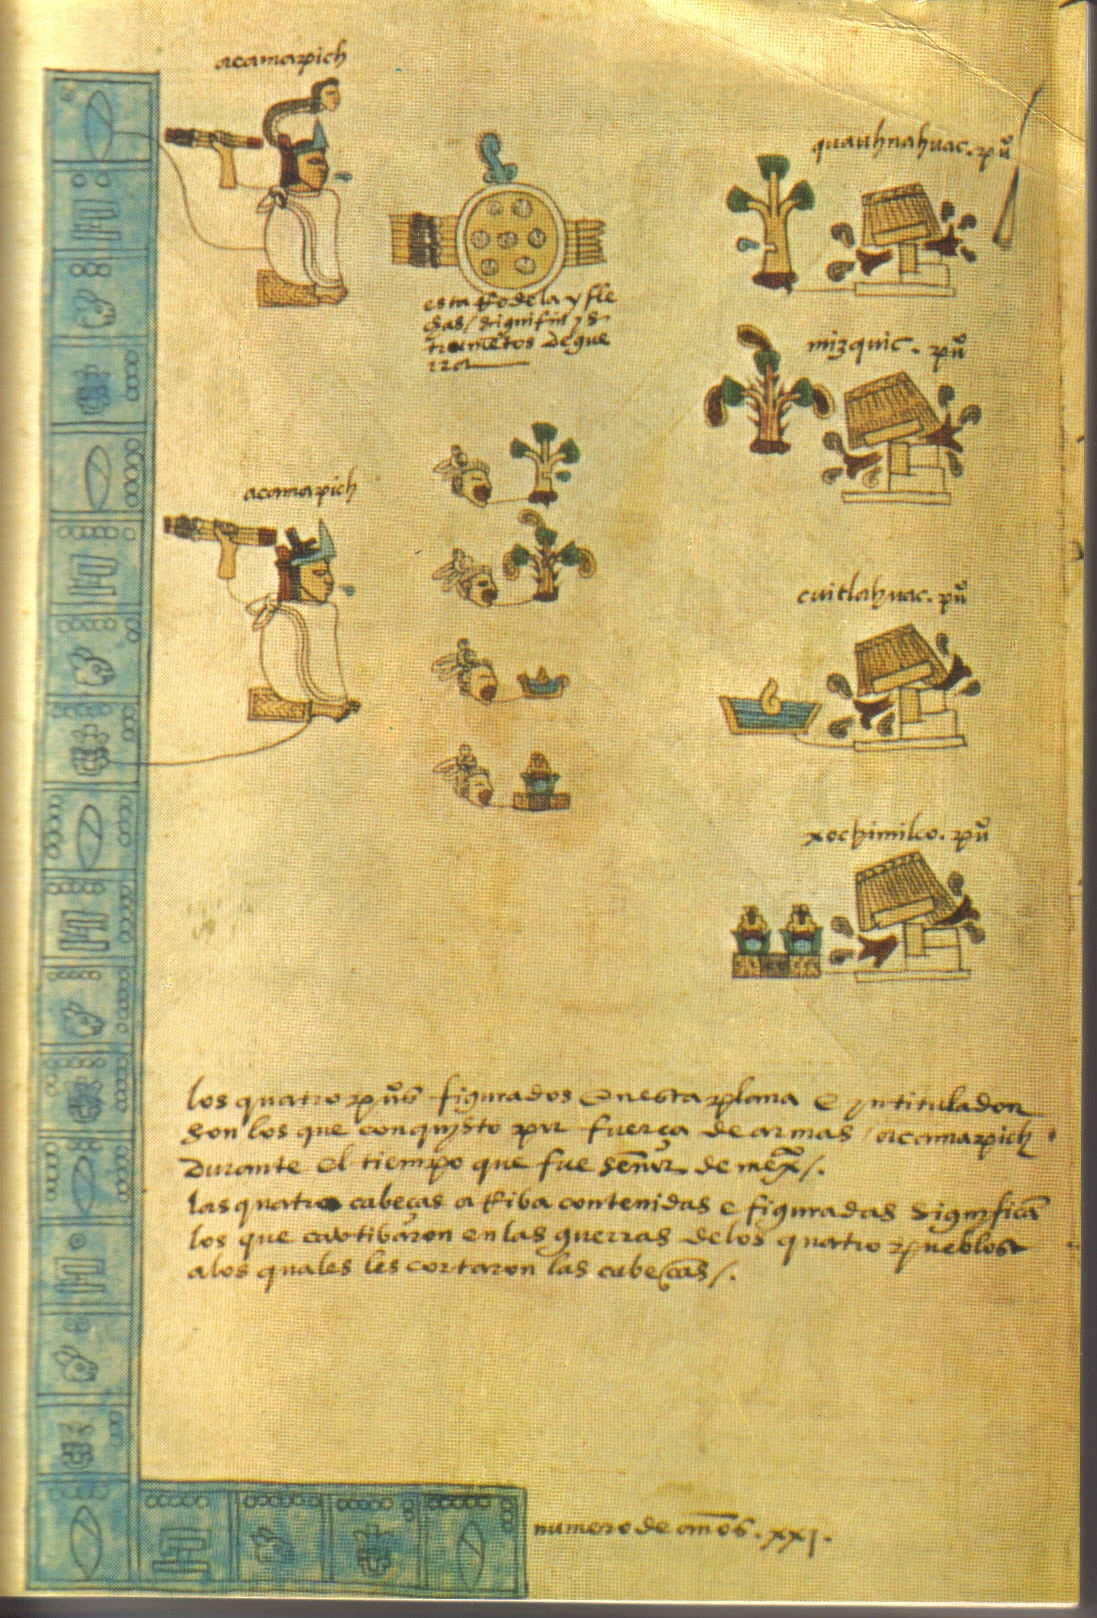 acamapich
quauhnahuac. pũ
esta Rodela y fle
chas / significã yns
trumẽtos de gue
rra
mizquic. pũ
acamapich
cuitlahuac. pũ
xochimilco. pũ
los quatro pũs figurados en esta plana e yntitulados
son los que conquysto por fuerça de armas / acamapich
durante el tiempo que fue señor de mexᷓ/.
las quatro cabeças a Riba contenidas e figuradas significã
los que cavtibaron en las guerras de los quatro pueblos
a los quales les cortaron las cabeças/.
numero de años. xxj.